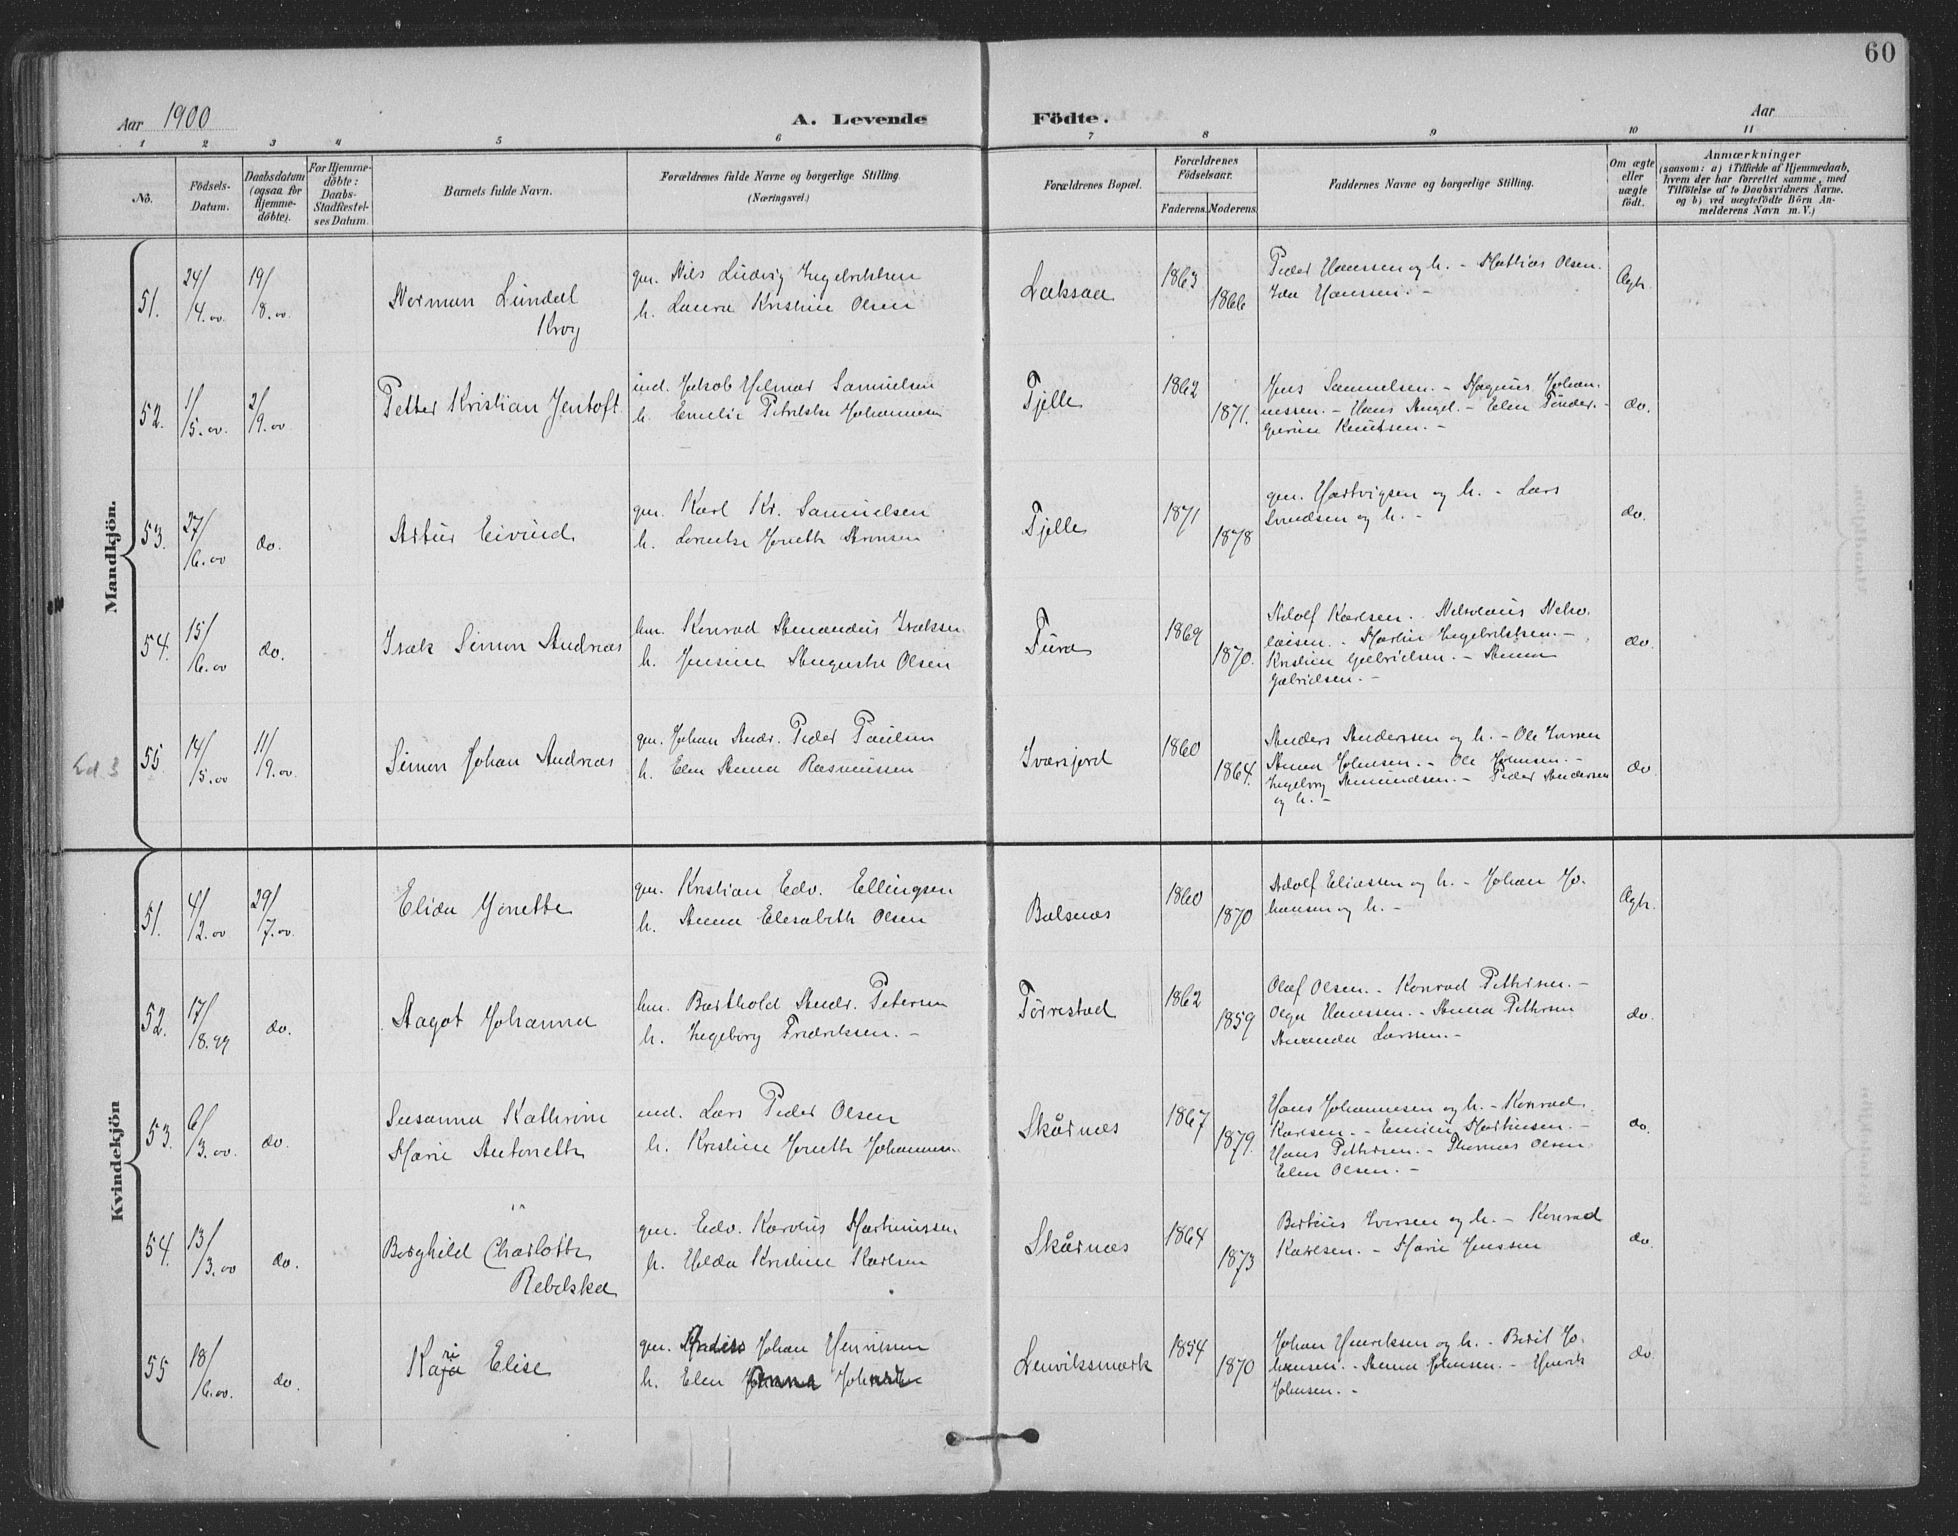 60
Aar 1900
A. Levende Födte.
Aar
1 2 3 4 5 6 7 8 9 10 11
No.
Födsels-
Datum.
Daabsdatum
(ogsaa for
Hjemme-
döbte).
For Hjemme-
döbte:
Daabs-
Stadfæstel-
ses Datum.
Barnets fulde Navn.
Forældrenes fulde Navne og borgerlige Stilling.
(Næringsvei.)
Forældrenes Bopæl.
Forældrenes
Födselsaar.
Faderens. Moderens.
Faddernes Navne og borgerlige Stilling.
Om ægte
eller
uægte
födt.
Anmærkninger
(saasom: a) i Tilfælde af Hjemmedaab,
hvem der har forrettet samme, med
Tilföielse af to Daabsvidners Navne.
og b) ved uægtefödte Börn An-
melderens Navn m. V.)
Mandkjön.
51. 24/4.00 19/8.00
Norman Lundal
Krog
gm. Nils Ludvig Ingebriktsen
h. Laura Kristine Olsen
Laksaa 1863 1866
Peder Hanssen og h. - Mathias Olsen.
Ida Hanssen. -
Ægte.
52. 1/5.00 2/9.00
Petter Kristian Jentoft
ind. Jakob Hilmar Samuelsen
h. Emelie Petrikke Johannesen
Tjelle 1862 1871.
Jens Samuelsen. - Magnus Johan-
nessen. - Hans Angel. - Elen Tønder. -
Gurine Knutsen. -
do.
53. 27/6.00 do.
Artur Eivind
gm. Karl Kr. Samuelsen
h. Lorentse Jonette Aronsen
Tjelle 1871 1878
gm. Hartvigsen og h. - Lars
Svendsen og h. -
do.
54. 15/6.00 do.
Isak Simon Andreas
lm. Konrad Amandus Isaksen
h. Jensine Augusta Olsen
Fura 1869 1870.
Adolf Karlsen. Nikolaus Niko-
laisen. - Martin Ingebriktsen. -
Kristine Gabrielsen. - Anna
Gabrielsen. -
do.
Ed 3
55. 14/5.00 11/9.00
Simon Johan Andreas
gm. Johan Andr. Peder Paulsen
h. Elen Anna Rasmussen
Sværsjord 1860 1864.
Anders Anderssen og h. - Ole Iversen
Anna Johnsen. - Ole Johnsen. -
Ingeborg Amundsen. - Peder Andersen
og h. -
do
Kvindekjön
51. 4/2.00 29/7.00
Elida Jonette
gm. Kristian Edv. Ellingsen
h. Anna Elesabeth Olsen
Balsnæs 1860 1870
Adolf Eliassen og h. - Johan Jo-
hansen og h. -
Ægte.
52. 17/8.99 do.
Aagot Johanna
lm. Barthold Andr. Petersen
h. Ingeborg Fredriksen. -
Tørrestad 1862 1859
Olaf Olsen. - Konrad Pettersen. -
Olga Hanssen. - Anna Pettersen
Amanda Larssen. -
do.
53. 6/3.00 do.
Susanna Kathrine
Marie Antonette
ind. Lars Peder Olsen
h. Kristine Jonette Johannesen.
Skårnæs 1867 1879.
Hans Johannesen og h. - Konrad
Karlsen. - Emilie Martinsen. -
Hans Pettersen. - Thomas Olsen
Elen Olsen. -
do.
54. 13/3.00 do.
Borghild Charlotte
Rebekka
gm. Edv. Karolius Martinussen
h. Hilda Kristine Karlsen
Skårnæs 1864 1873
Berteus Iversen og h. - Konrad
Karlsen. - Marie Jenssen
do.
55 18/6.00. do.
ri
Kaja Elise
gm. Johan Henriksen
h. Elen
Lenviksmark 1854 1870
Johan Henriksen og h. - Berit Jo-
hansen. - Anna Johnsen. - Henrik
Johnsen. -
do.